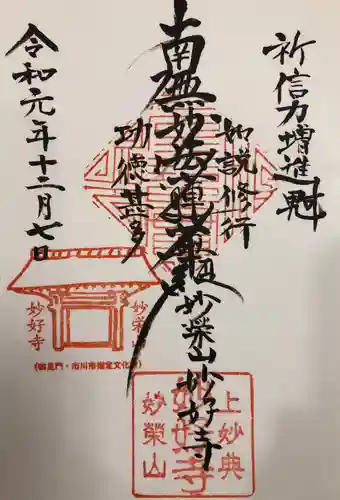 祈信力増進
如説修行
南無妙法蓮華経
妙栄山妙好寺
功徳甚多
令和元年十二月七日
妙栄山
妙好寺
(御見門・市川市指定文化財)
上妙典
妙好寺
妙榮山